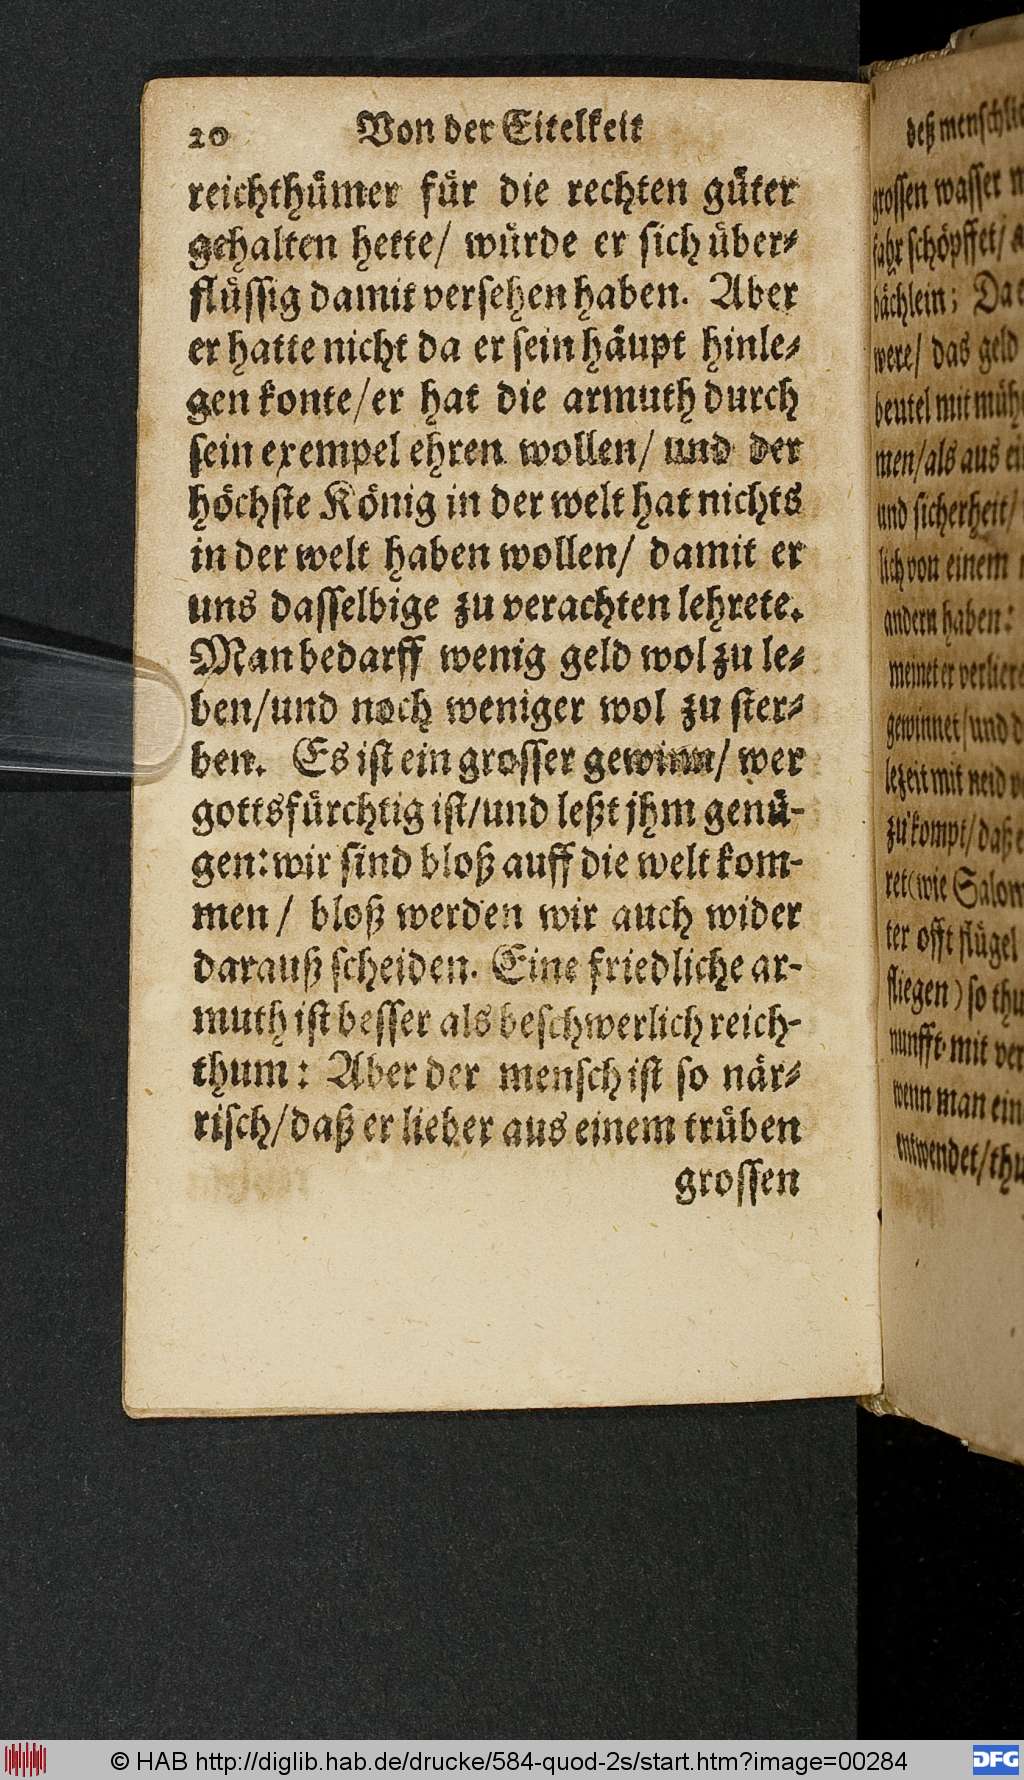 20 Von der Eitelkeit
reichthümer für die rechten güter
gehalten hette/ würde er sich über-
flüssig damit versehen haben. Aber
er hatte nicht da er sein häupt hinle-
gen konte/er hat die armuth durch
sein exempel ehren wollen/ und der
höchste König in der welt hat nichts
in der welt haben wollen/ damit er
uns dasselbige zu verachten lehrete.
Man bedarff wenig geld wol zu le-
ben/und noch weniger wol zu ster-
ben. Es ist ein grosser gewinn/ wer
gottsfürchtig ist/und leßt jhm genü-
gen: wir sind bloß auff die welt kom-
men/ bloß werden wir auch wider
darauß scheiden. Eine friedliche ar-
muth ist besser als beschwerlich reich-
thum: Aber der mensch ist so när-
risch/daß er lieber aus einem trüben
grossen
deß menschli
grossen wasser
fahr schöpffet/
bächlein; Da
were/ das geld
beutel mit müh
men/als aus ei
und sicherheit/
lich von einem
andern haben:
meinet er verliere
gewinnet/und d
lezeit mit neid
zu kompt/daß
ret (wie Salom
ter offt flügel
fliegen) so thu
nunfft mit ver
wenn man ein
entwendet/thu
© HAB http://diglib.hab.de/drucke/584-quod-2s/start.htm?image=00284
DFG